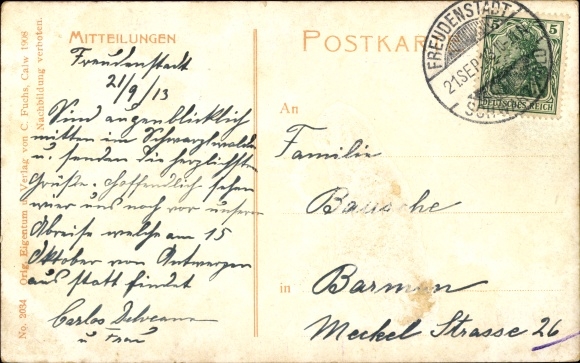 MITTEILUNGEN
Freudenstadt
21/9/13
Sind augenblicklich
mitten im Schwarzwalde
u. senden die herzlichste
Grüße. Hoffendlich sehen
wier uns noch vor unserer
Abreise welche am 15
Oktober von Antwerpen
aus statt findet
Carlos
u Frau
No. 2034 Orig. Eigentum u. Verlag von C. Fuchs, Calw 1908
Nachbildung verboten.
POSTKAR
FREUDENSTADT
21SEP
5 5
DEUTSCHES REICH
An
Familie
Bausche
in Barmen
Meckel Strasse 26